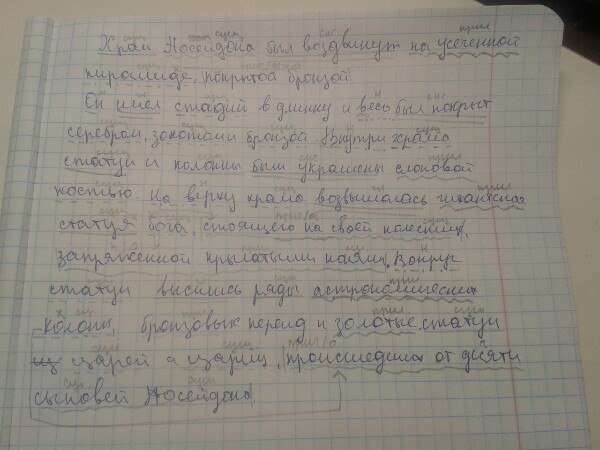 Храм Посейдона был воздвинут на усеченной
пирамиде, покрытой бронзой.
Он имел стадий в длинну и весь был покрыт
серебром, золотом и бронзой. Внутри храма
статуи и колонны были украшены слоновой
костью. На верху храма возвышалась гигантская
статуя бога, стоящего на своей колеснице,
запряженной крылатыми конями. Вокруг
статуи высились ряды астрономических
колонн, бронзовых нереид и золотые статуи
из царей и цариц, происшедших от десяти
сыновей Посейдона.